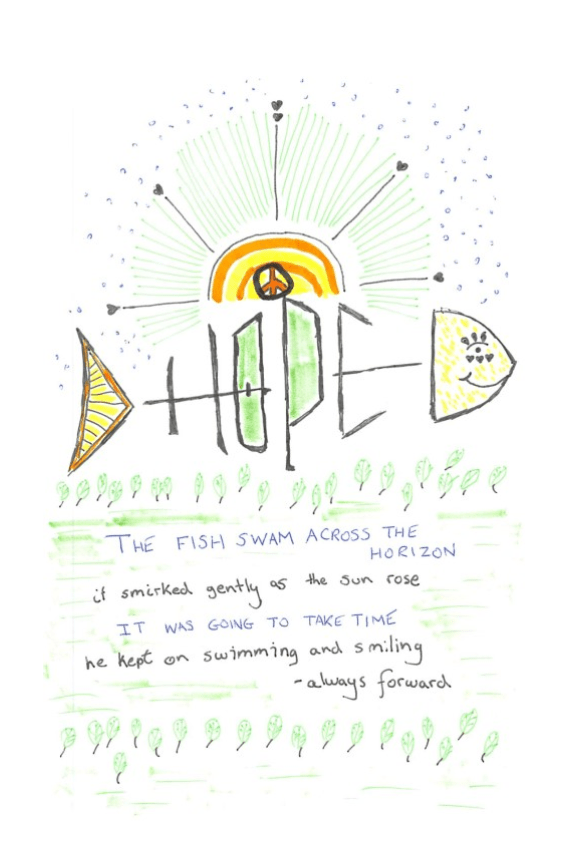 HOPE
THE FISH SWAM ACROSS THE
HORIZON
it smirked gently as the sun rose
IT WAS GOING TO TAKE TIME
he kept on swimming and smiling
- always forward